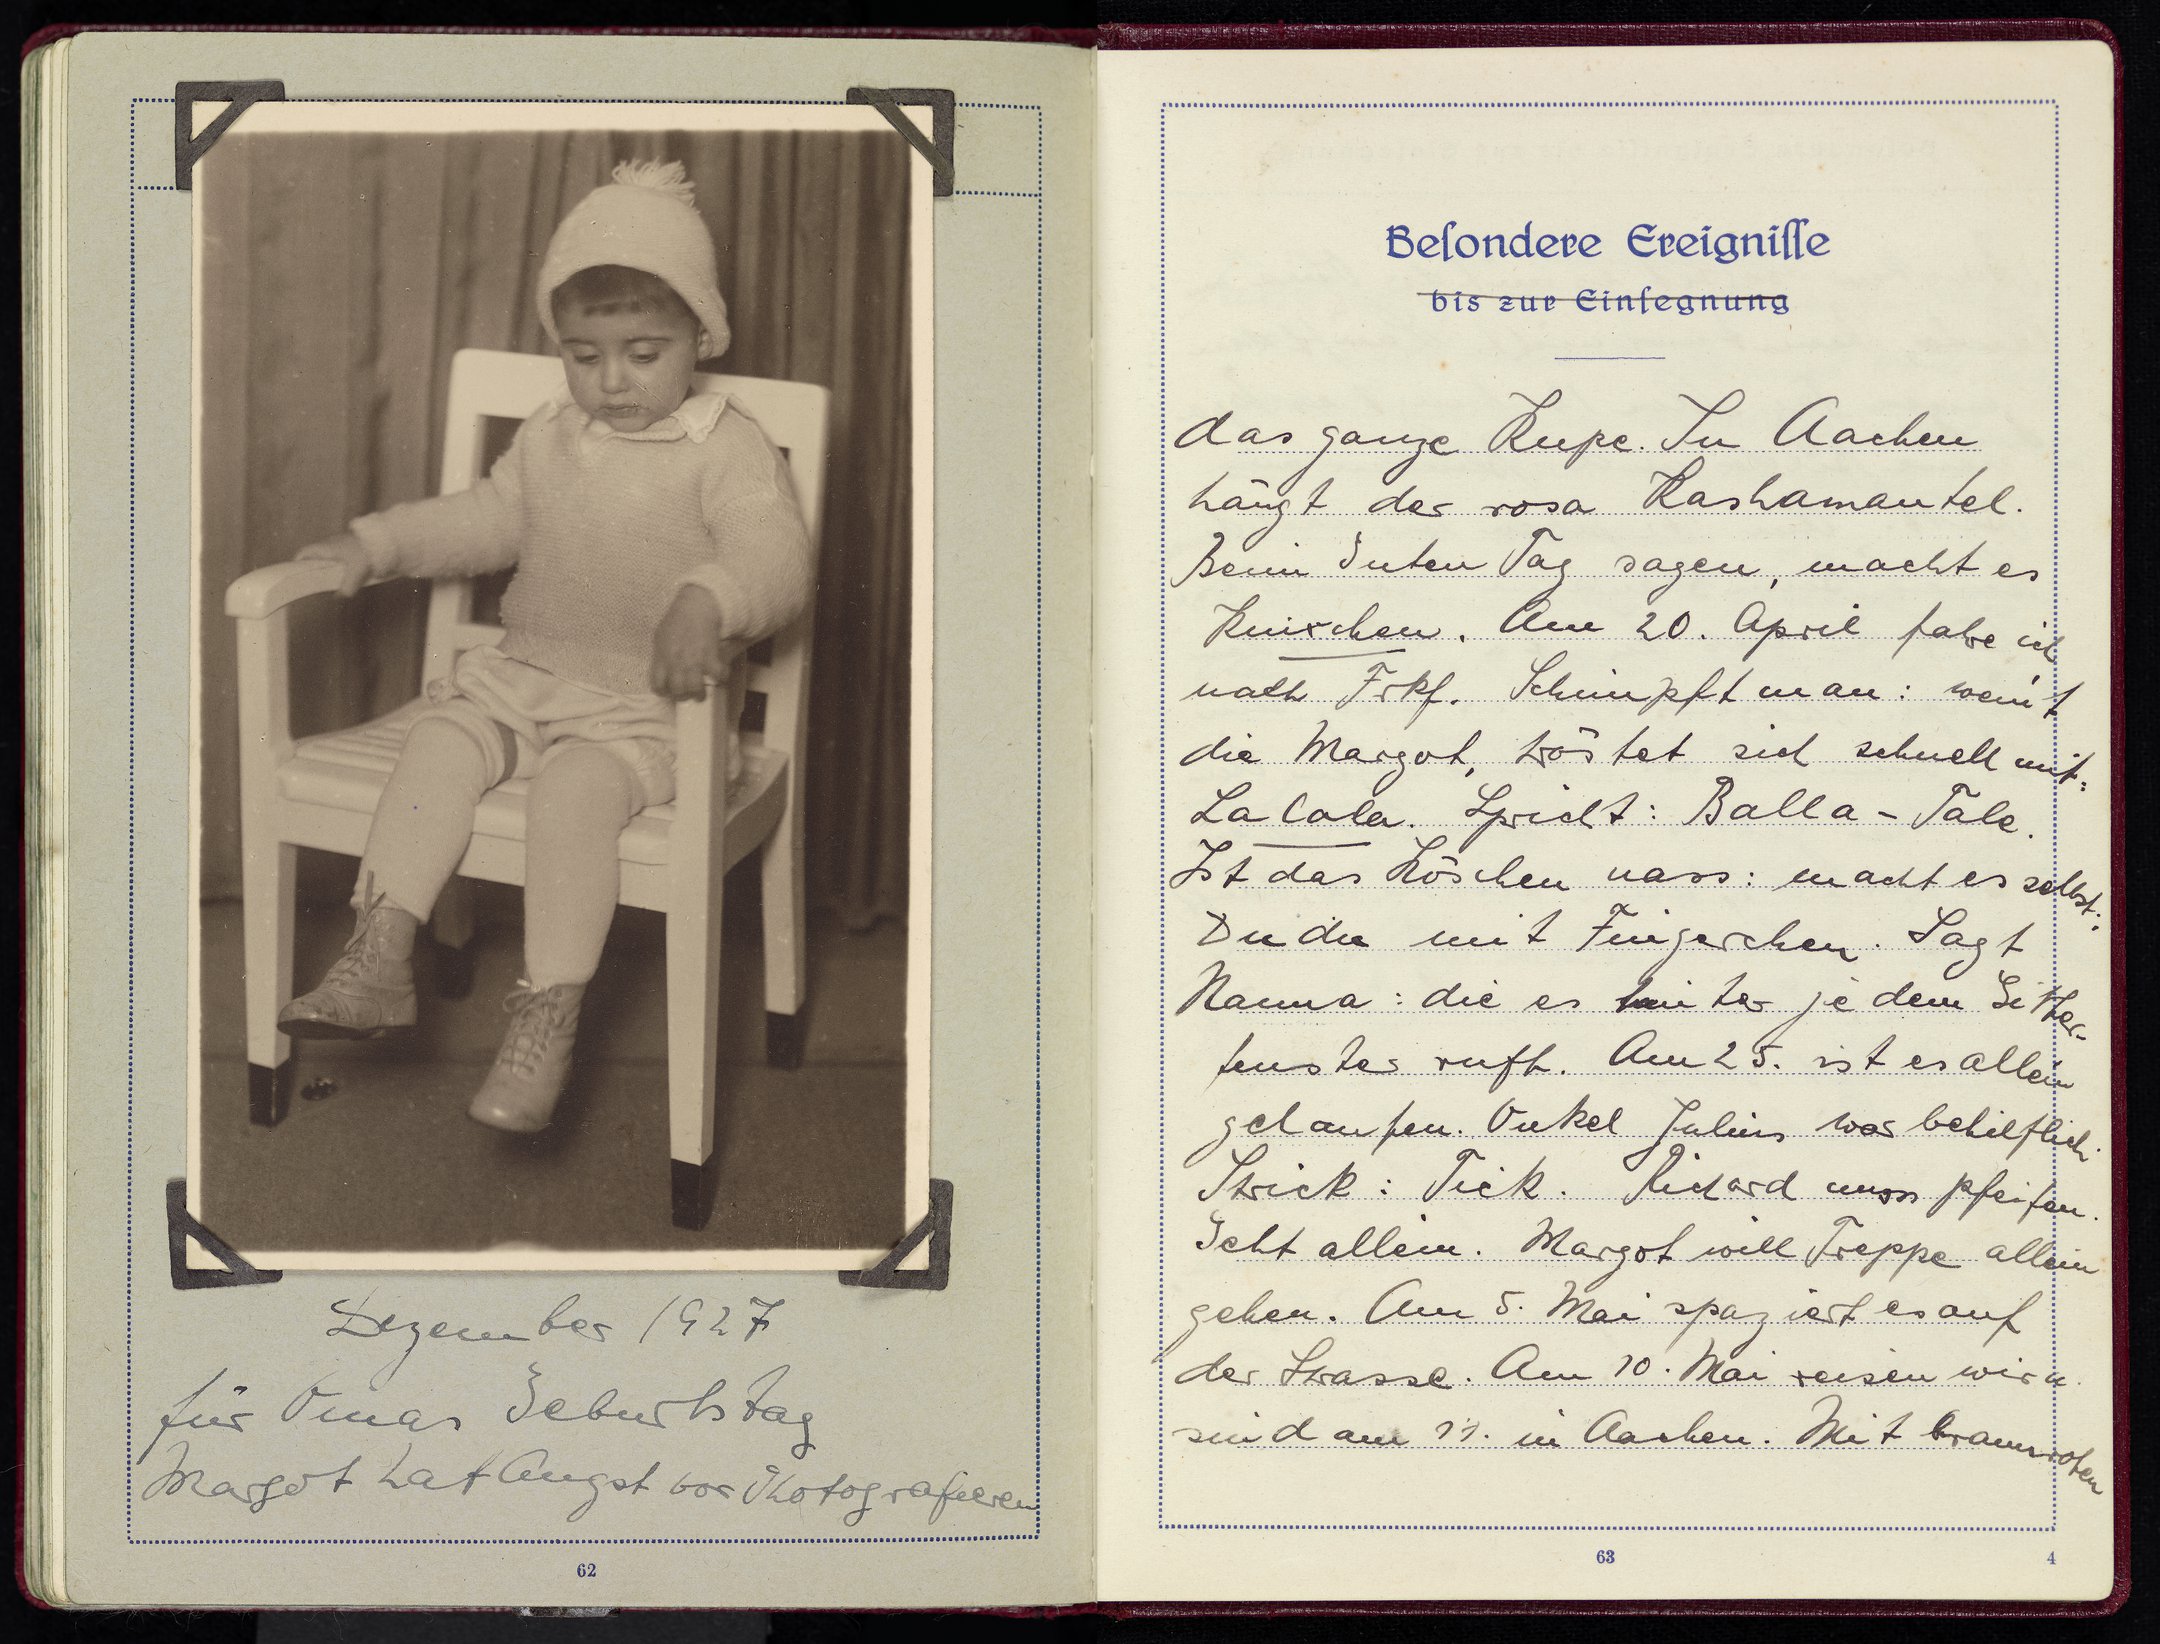 Dezember 1927
für Omas Geburtstag
Margot hat Angst vor Photografieren
62
Besondere Ereignisse
bis zur Einsegnung
das ganze Kupe. In Aachen
hängt der rosa Kashamantel.
Beim Guten Tag sagen, macht es
Knixchen. Am 20. April fahre ich
nach Frkf. Schimpft man: weint
die Margot, tröstet sich schnell mit:
La Lola. Spricht: Balla - Tale.
Ist das Höschen nass: macht es selbst:
Du du mit Fingerchen. Sagt
Nanna: die es hinter jedem Gitter-
fenster ruft. Am 25. ist es allein
gelaufen. Onkel Julius war behilflich.
Strick: Tick. Richard muss pfeifen.
Geht allein. Margot will Treppe allein
gehen. Am 5. Mai spaziert es auf
der Strasse. Am 10. Mai reisen wir u.
sind am 11. in Aachen. Mit braunroten
63
4